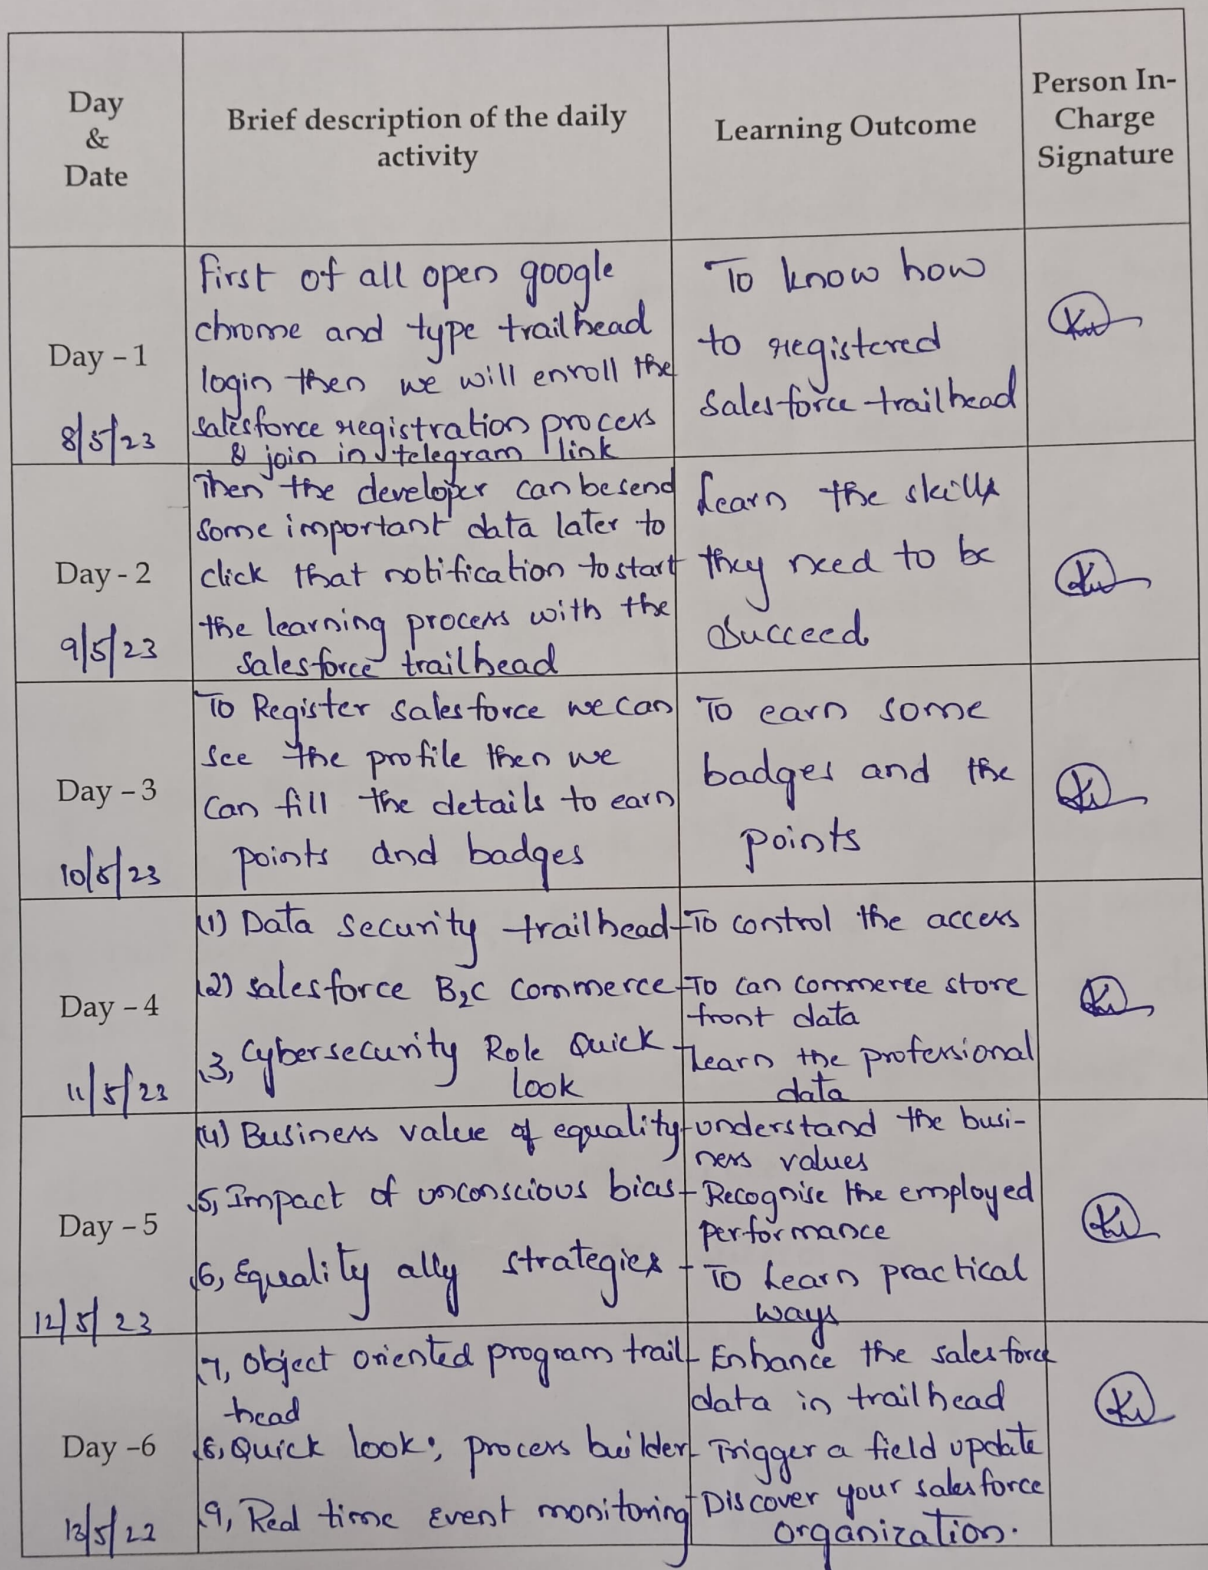 Day
&
Date
Brief description of the daily
activity
Learning Outcome
Person In-
Charge
Signature
Day - 1
8/5/23
First of all open google
chrome and type trailhead
login then we will enroll the
salesforce registration process
& join in telegram link
To know how
to registered
Salesforce trailhead
Day - 2
9/5/23
Then the developer can be send
some important data later to
click that notification to start
the learning process with the
salesforce trailhead
Learn the skills
they need to be
Succeed
Day - 3
10/5/23
To Register salesforce we can
see the profile then we
can fill the details to earn
points and badges
To earn some
badges and the
points
Day - 4
11/5/23
(1) Data security trailhead
(2) salesforce B2C commerce
3, Cybersecurity Role Quick
look
- To control the access
- To can commerce store
front data
- Learn the professional
data
Day - 5
12/5/23
(4) Business value of equality
5, Impact of unconscious bias
6, Equality ally strategies
- understand the busi-
ness values
- Recognise the employed
performance
- To Learn practical
ways
Day -6
13/5/22
7, Object oriented program trail
head
8, Quick look; process builder
9, Real time Event monitoring
- Enhance the salesforce
data in trailhead
- Trigger a field update
- Discover your salesforce
organization.